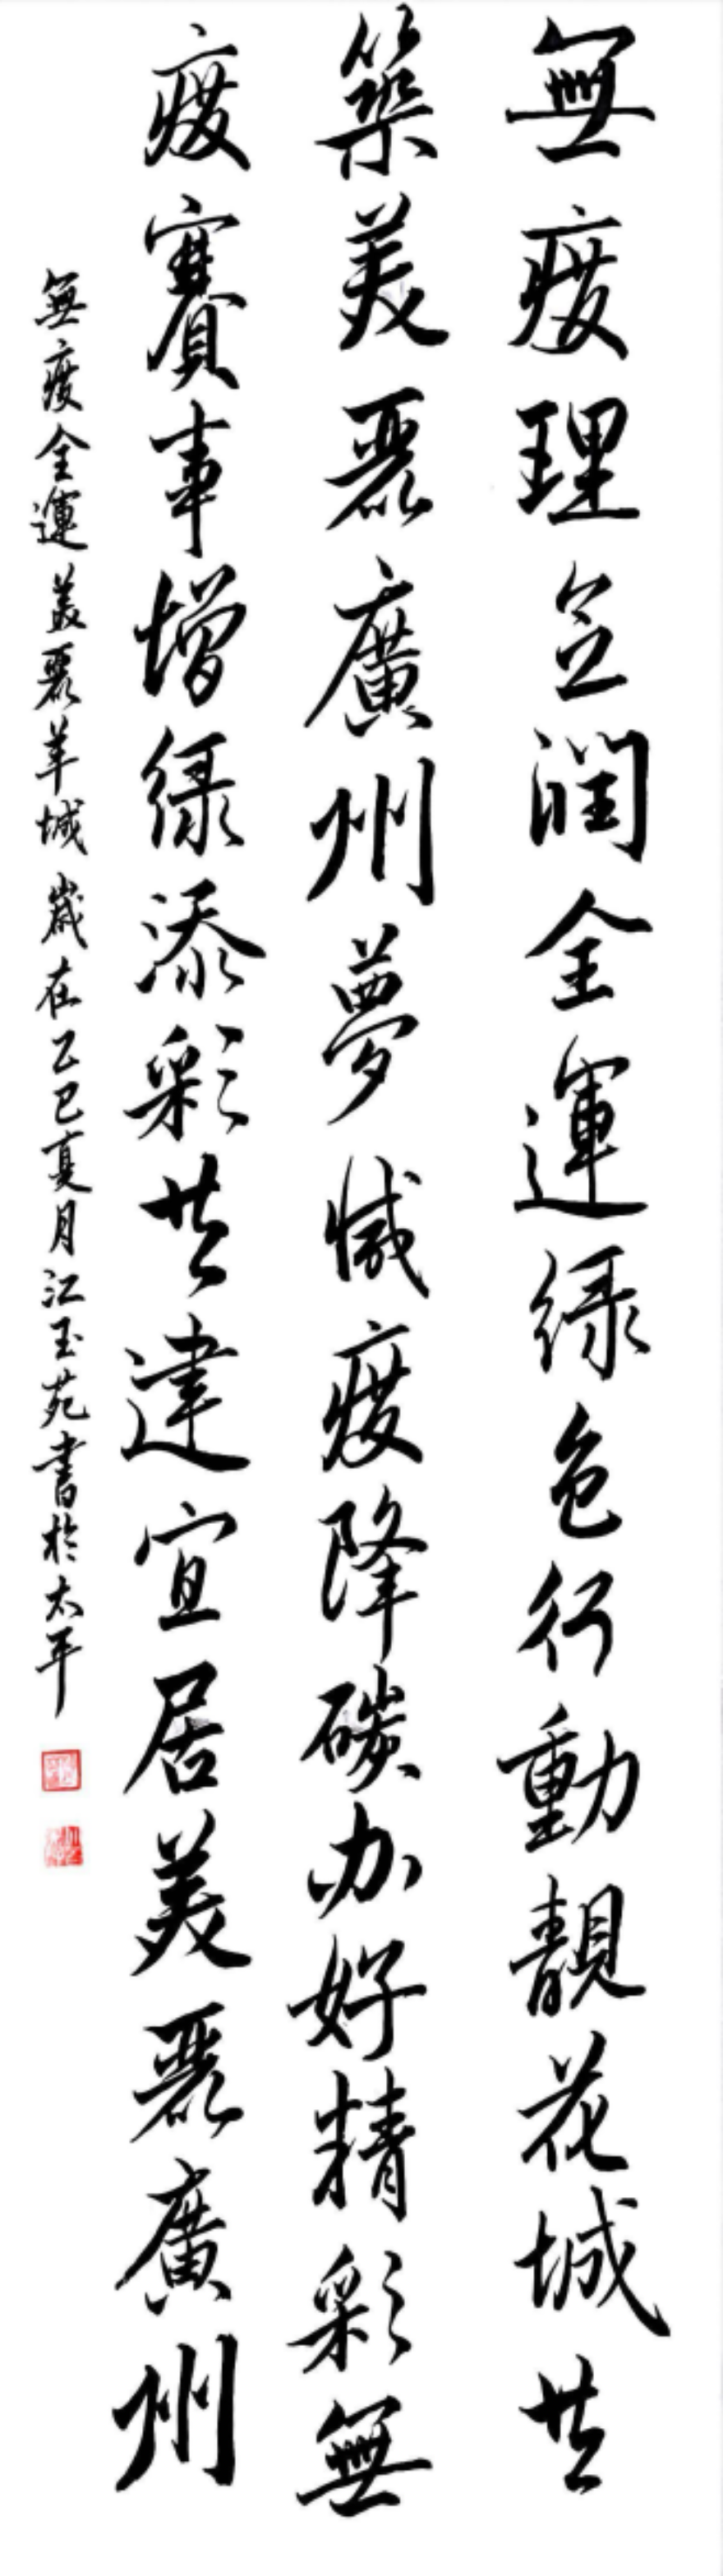 無廢理念润全運緑色行動靚花城共
築美麗廣州夢减廢降碳办好精彩無
廢賽事增緑添彩共建宜居美麗廣州
無廢全運美麗羊城歲在乙巳夏月江玉苑書於太平